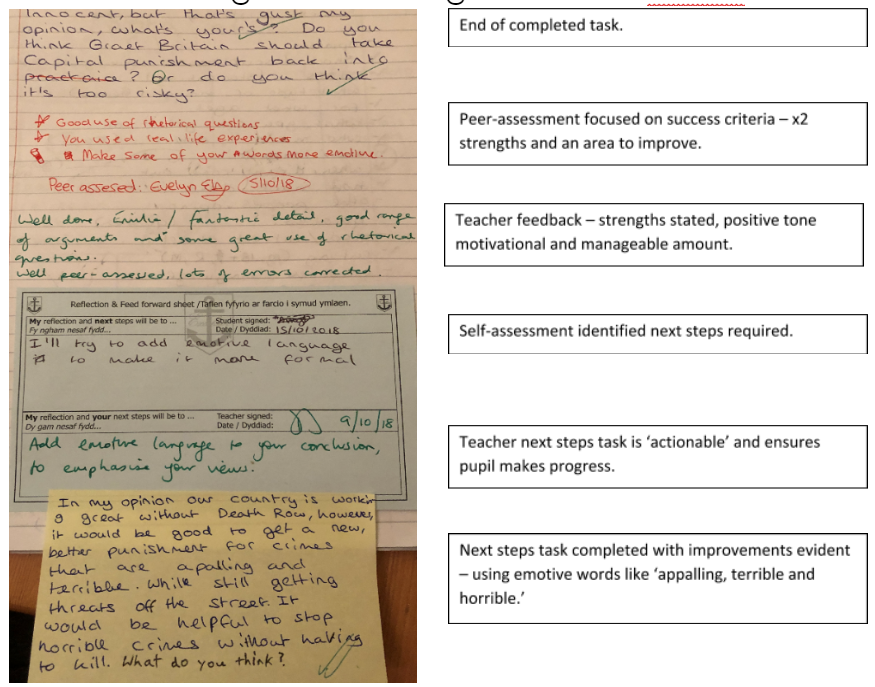 Innocent, but that's gust my
opinion, whats your's? Do you
think Graet Britain should take
Capital punishment back into
practaice? Or do you think
it's too risky?
Good use of rhetorical questions
You used real-life experiences
Make some of your words more emotive.
Peer assesed: Evelyn 5/10/18
Well done, Emilie / fantastic detail, good range
of arguments and some great use of rhetorical
question.
Well peer-assessed, lots of errors corrected.
Reflection & Feed forward sheet /Taflen fyfyrio ar farcio i symud ymlaen.
My reflection and next steps will be to ...
Fy ngham nesaf fydd...
Student signed:
Date / Dyddiad: 15/10/2018
I'll try to add emotive language
to make it more formal
My reflection and your next steps will be to ...
Dy gam nesaf fydd...
Teacher signed:
Date / Dyddiad: 9/10/18
Add emotive language to your conclusion,
to emphasise your views.
In my opinion our country is workin
g great without Death Row, however,
it would be good to get a new,
better punishment for crimes
that are apalling and
terribbe. While still getting
threats off the street. It
would be helpful to stop
horrible crimes without having
to kill. What do you think?
End of completed task.
Peer-assessment focused on success criteria – x2
strengths and an area to improve.
Teacher feedback – strengths stated, positive tone
motivational and manageable amount.
Self-assessment identified next steps required.
Teacher next steps task is ‘actionable’ and ensures
pupil makes progress.
Next steps task completed with improvements evident
– using emotive words like ‘appalling, terrible and
horrible.’